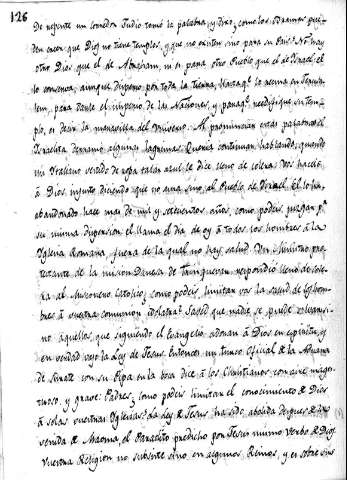 126
De repente un corredor Judio tomó la palabra, y dixo, como los Bramas pue-
den creer que Dios no tiene templos, y que no existen sino para su Pais? No hay
otro Dios que el de Abraham, ni si para otro Pueblo que el de Israel: el
lo conserva, aunque disperso por toda la tierra, hasta q.e lo reuna en Jerusa-
lem, para darle el imperio de las Naciones, y para q.e reedifique su tem-
plo, es decir la maravilla del Universo. Al pronunciar estas palabras el
Israelita derramo algunas lagrimas. Queria continuar hablando, quando
un Italiano vestido de ropa talar azul le dice lleno de colera: vos haceis
á Dios injusto diciendo que no ama sino al Pueblo de Israel. El lo ha
abandonado hace mas de mil y setecientos años, como podeis juzgar p.r
su misma dispersion. el llama el dia de oy á todos los hombres á la
Iglesia Romana, fuera de la qual no hay salud. Un Ministro pro-
testante de la mision Danesa de Trinquevar respondio lleno de cole-
ra al Misionero Catolico; como podeis limitar vos la salud de los hom-
bres á vuestra comunion idolatra? Sabed que nadie se puede salvar si-
no aquellos, que siguiendo el Evangelio adoran á Dios en espiritu, y
en verdad vajo la Ley de Jesus. Entonces un turco Oficial de la Aduana
de Surate con su Pipa en la boca dice á los Christianos, con aire mages-
tuoso, y grave: Padres, como podeis limitar el conocimiento de Dios
á solas vuestras Iglesias? La Ley de Jesus ha sido abolida despues de la
venida de Maoma, el Paracleto predicho por Jesus mismo Verbo de Dios.
Vuestra Religion no subsiste sino en algunos Reinos, y es sobre sus